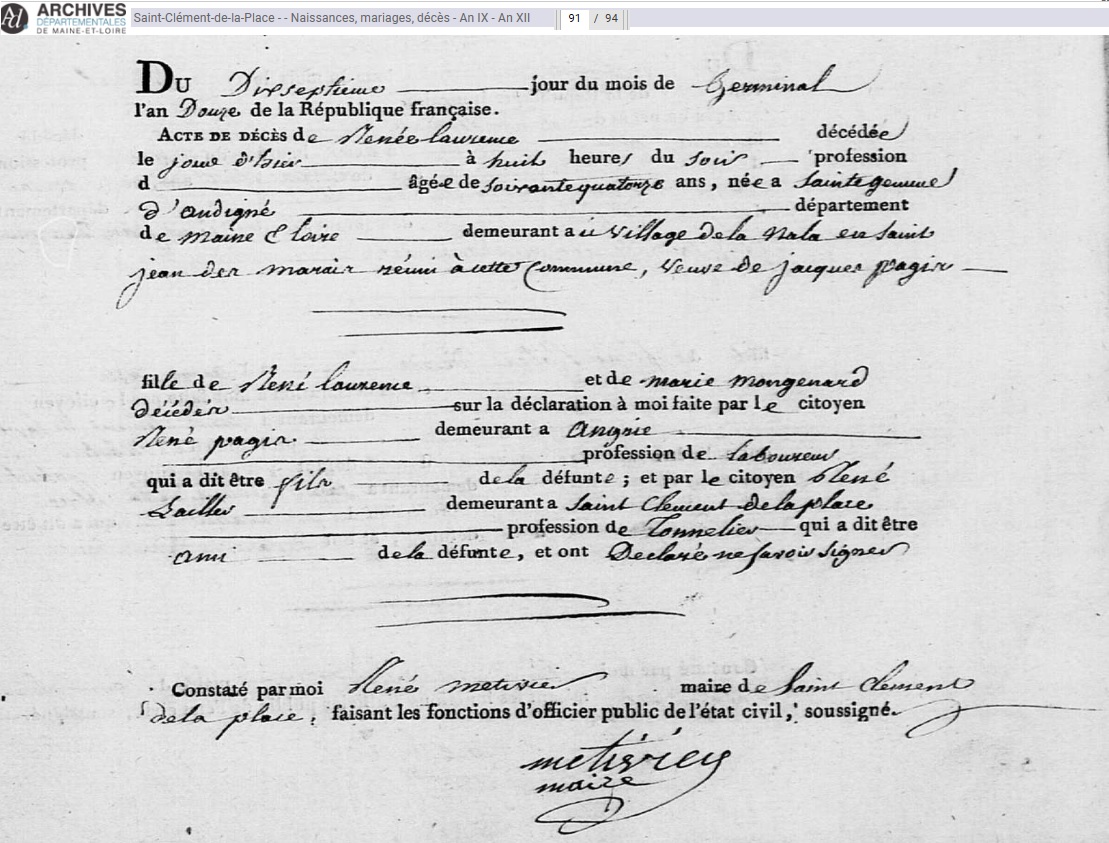 ARCHIVES
DÉPARTEMENTALES
DE MAINE-ET-LOIRE
Saint-Clément-de-la-Place - - Naissances, mariages, décès - An IX - An XII
91 / 94
DU Dixseptieme jour du mois de Germinal
l'an Douze de la République française.
ACTE DE DÉCÈS de Renée laurence décédée
le jour d'hier à huit heures du soir profession
d âgée de soixante quatorze ans, née a sainte gemme
d'andigné département
de maine & loire demeurant a u village de la en saint
jean des marais réuni à cette Commune, Veuve de jacques pagis
fille de René laurence et de marie mongenard
décédés sur la déclaration à moi faite par le citoyen
René pagis demeurant a angrie
profession de laboureur
qui a dit être fils de la défunte ; et par le citoyen René
demeurant a saint Clement de la place
profession de Tonnelier qui a dit être
ami de la défunte, et ont Declaré ne savoir signer
Constaté par moi René metivier maire de saint clement
de la place, faisant les fonctions d'officier public de l'état civil, soussigné.
metivier
maire